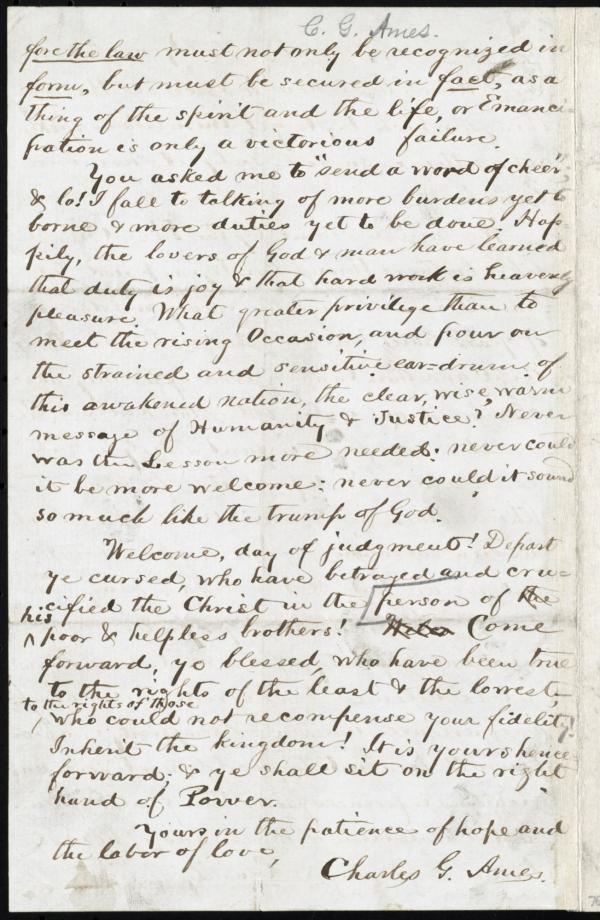 C. G. Ames.
fore the law must not only be recognized in
form, but must be secured in fact, as a
thing of the spirit and the life, or Emanci-
pation is only a victorious failure.
You asked me to "send a word of cheer",
& lo! I fall to talking of more burdens yet to
borne & more duties yet to be done. Hap-
pily, the lovers of God & man have learned
that duty is joy & that hard work is heavenly
pleasure. What greater privilege than to
meet the rising Occasion, and pour on
the strained and sensitive ear-drum of
this awakened nation, the clear, wise, warm
message of Humanity & Justice? Never
was the Lesson more needed: never could
it be more welcome: never could it sound
so much like the trump of God.
Welcome, day of judgment! Depart
ye cursed, who have betrayed and cru-
cified the Christ in the person of the
his
poor & helpless brothers! Come
forward, ye blessed, who have been true
to the rights of the least & the lowest,
to the rights of those
who could not recompense your fidelity!
Inherit the kingdom! It is yours hence-
forward: & ye shall sit on the right
hand of Power.
Yours in the patience of hope and
the labor of love,
Charles G. Ames.